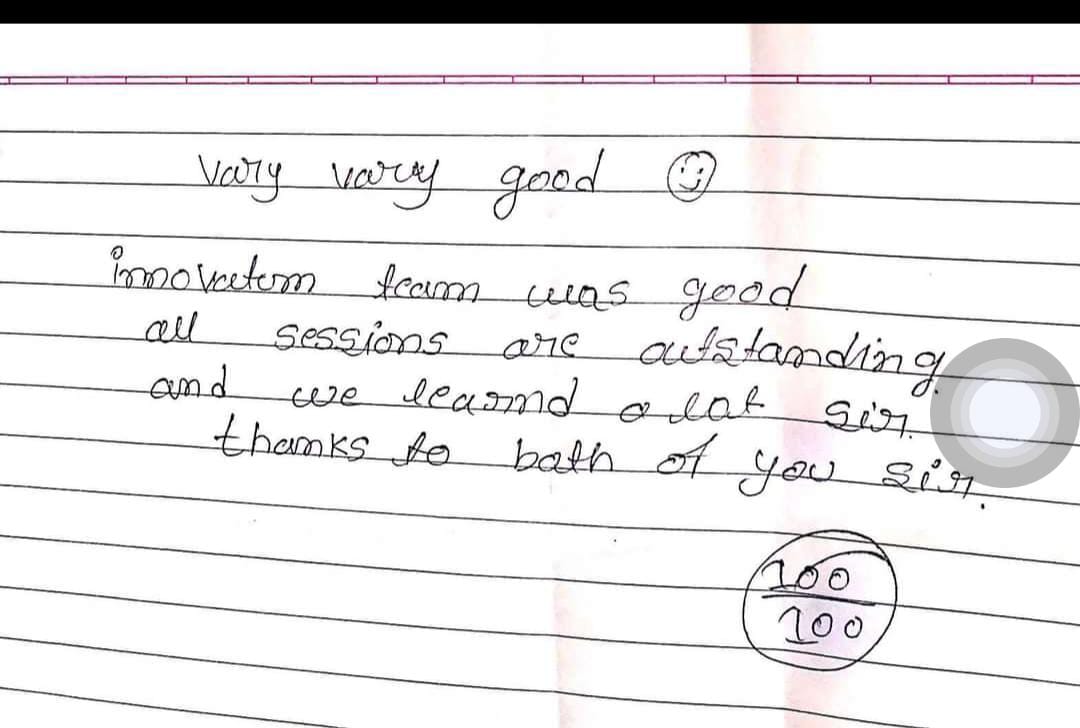 Vary vary good
innovatom team was good
all sessions are outstanding.
and we learnd a lot sir.
thanks to both of you sir.
100
100